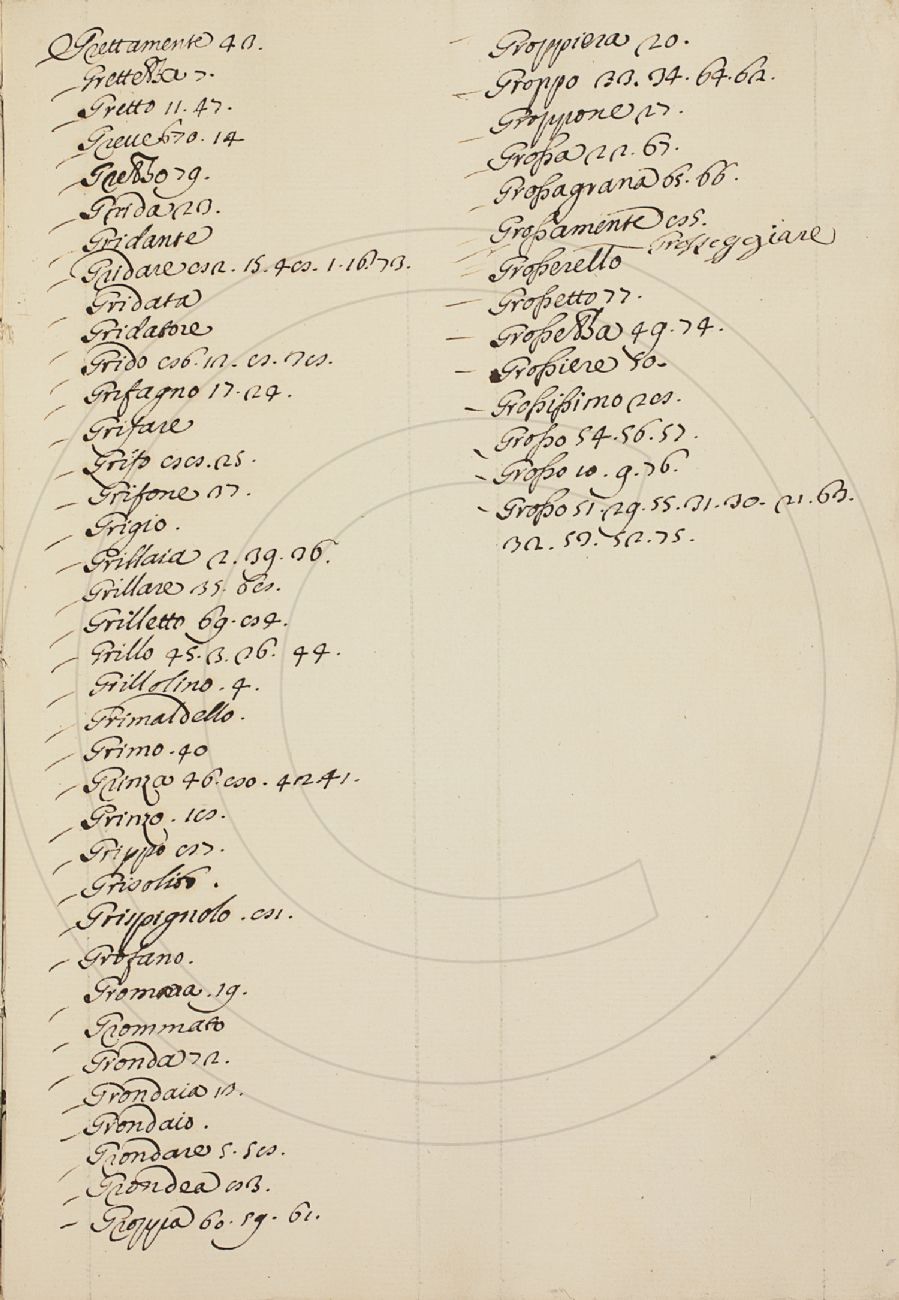 Grettamente 43.
Grettezza 7.
Gretto 11. 47.
Greue 670. 14
Grezzo 79.
Grida 23.
Gridante
Gridare 82. 15. 48. 1. 16. 73.
Gridata
Gridatore
Grido 86. 12. 8. 78.
Grifagno 17. 24.
Grifare
Grifo 88. 25.
Grifone 37.
Grigio.
Grillaia 2. 39. 36.
Grillare 35. 68.
Grilletto 69. 84.
Grillo 45. 3. 26. 44.
Grillolino. 4.
Grimaldello.
Grimo. 40
Grinza 46. 80. 42 41.
Grinzo. 18.
Grippo 87.
Grisolito.
Grispignolo. 81.
Grofano.
Gromma. 19.
Grommato
Gronda 72.
Grondaia 13.
Grondaio.
Grondare 5. 58.
Grondea 83.
Groppa 60. 59. 61.
Groppiera 20.
Groppo 33. 34. 64. 62.
Groppone 27.
Großa 22. 67.
Großagrana 65. 66.
Großamente 85.
Großerello Grosseggiare
Großetto 77.
Großezza 49. 74.
Großiere 50.
Großißimo 28.
Großo 54. 56. 57.
Großo 10. 9. 76.
Großo 51. 29. 55. 31. 30. 21. 63.
32. 53. 52. 75.